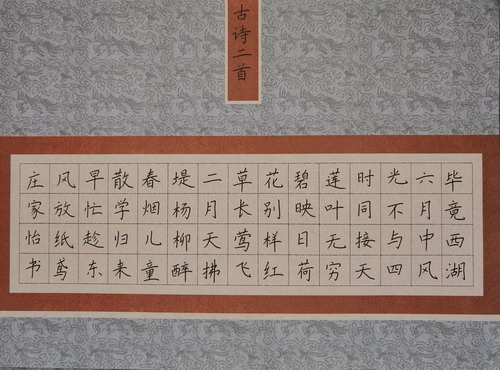 古诗二首
毕竟西湖
六月中风
光不与四
时同接天
莲叶无穷
碧映日荷
花别样红
草长莺飞
二月天拂
堤杨柳醉
春烟儿童
散学归来
早忙趁东
风放纸鸢
庄家怡书